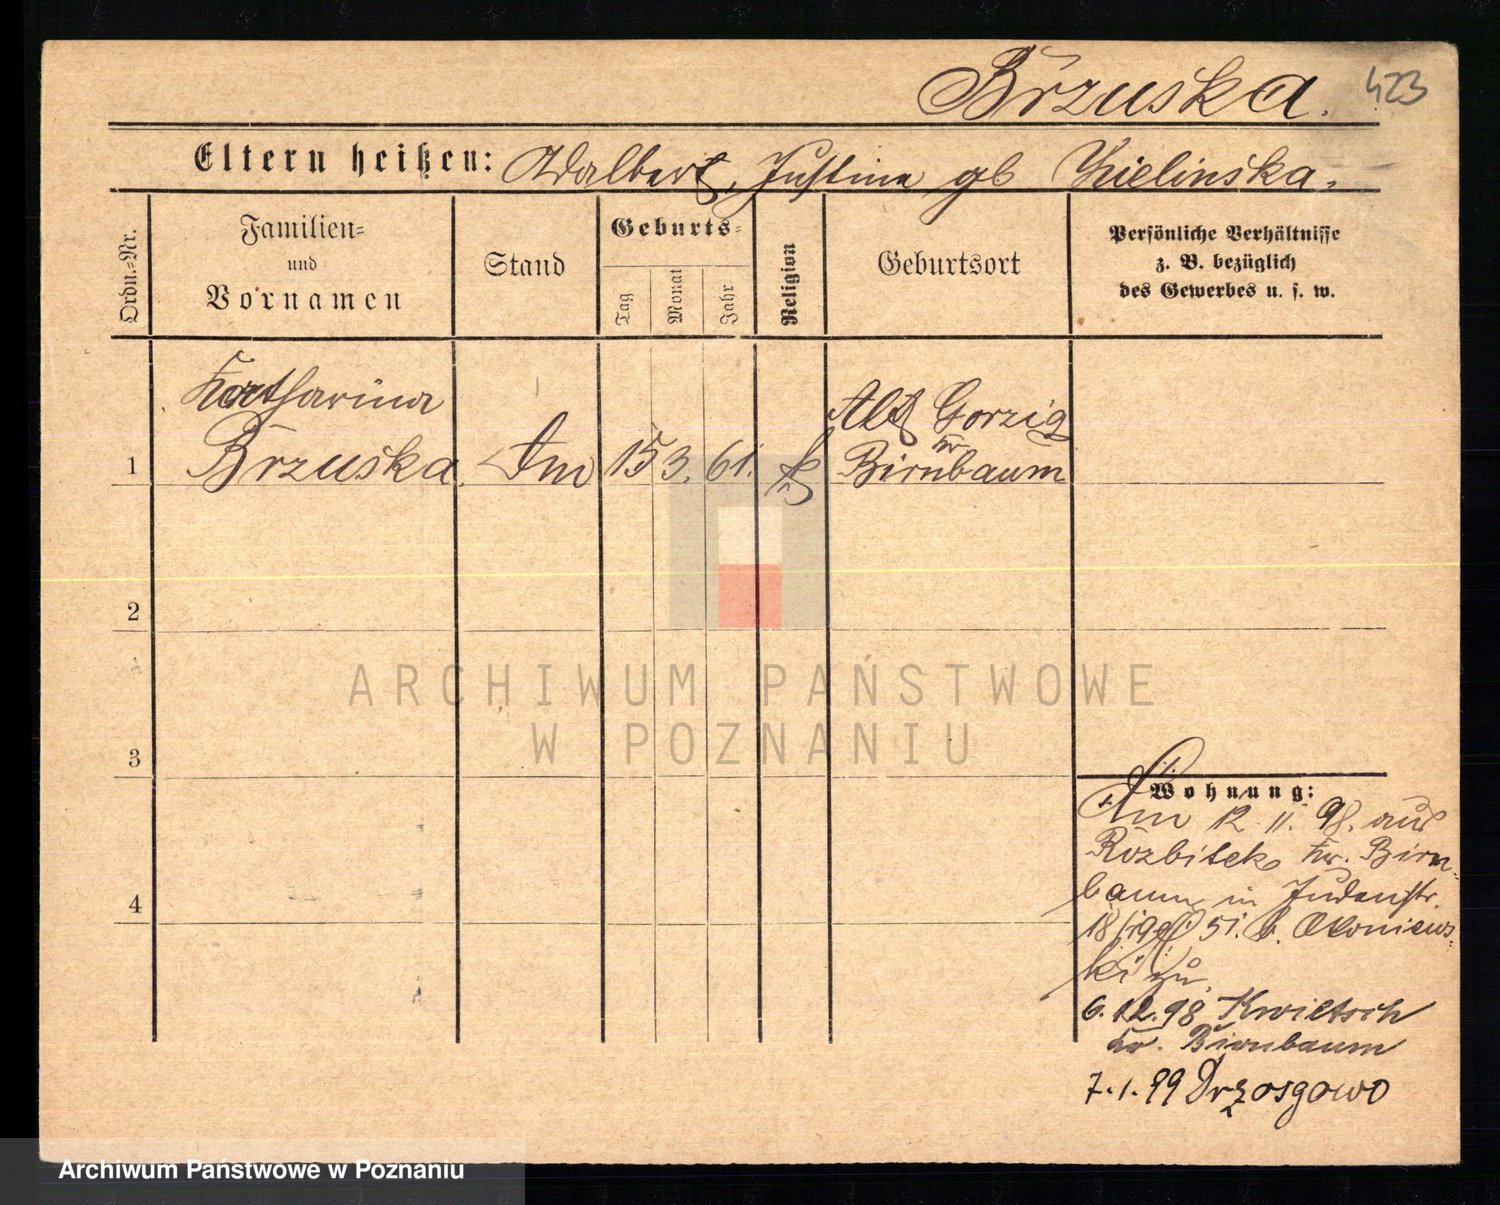 Brzuska.
423
Eltern heißen: Adalbert, Justine gb Zielinska.
Ordn.-Nr.
Familien-
und
Vornamen
Stand
Geburts-
Tag
Monat
Jahr
Religion
Geburtsort
Persönliche Verhältnisse
z. B. bezüglich
des Gewerbes u. s. w.
Katharina
Alt Gorzig
Kr
1 Brzuska. 15 3. 61. Birnbaum
2
3
4
Wohnung:
Am 12 11. 98. aus
Rozbitek Kr. Birn-
baum in Judenstr.
18 51. b.
ki zu
6.12.98 Kwiltsch
Kr. Birnbaum
7.1.99
ARCHIWUM PAŃSTWOWE
W POZNANIU
Archiwum Państwowe w Poznaniu